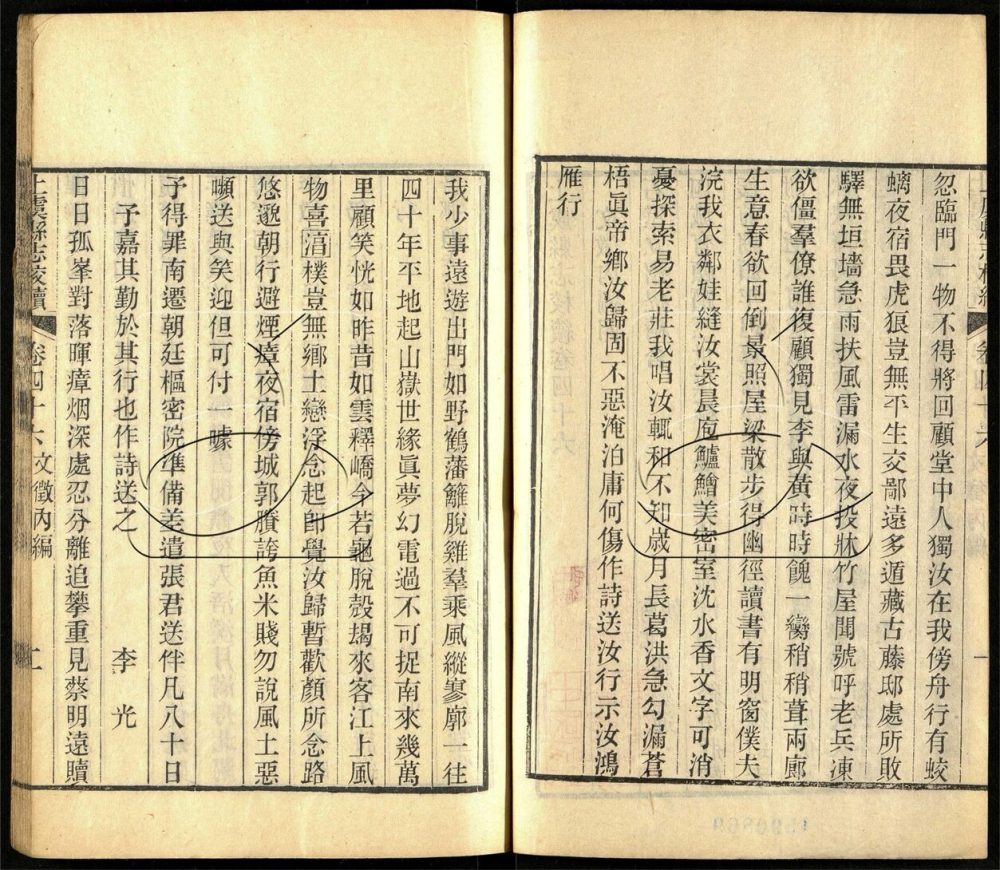 忽臨門一物不得將回顧堂中人獨汝在我傍舟行有蛟
螭夜宿畏虎狼豈無平生交鄙遠多遁藏古藤邸處所敗
驛無垣墻急雨扶風雷漏水夜投牀竹屋聞號呼老兵凍
欲僵羣僚誰復顧獨見李與黃時時餽一臠稍稍葺兩廊
生意春欲回倒景照屋梁散步得幽徑讀書有明窗僕夫
浣我衣鄰娃縫汝裳晨庖鱸鱠美密室沈水香文字可消
憂探索易老莊我唱汝輒和不知歲月長葛洪急勾漏蒼
梧眞帝鄉汝歸固不惡淹泊庸何傷作詩送汝行示汝鴻
雁行
我少事遠遊出門如野鶴藩籬脫雞羣乘風縱寥廓一往
四十年平地起山嶽世緣眞夢幻電過不可捉南來幾萬
里顧笑恍如昨昔如雲釋嶠今若龜脫殼朅來客江上風
物喜樸豈無鄉土戀浮念起卽覺汝歸暫歡顏所念路
悠邈朝行避煙瘴夜宿傍城郭賸誇魚米賤勿說風土惡
嚬送與笑迎但可付一噱
予得罪南遷朝廷樞密院準備差遣張君送伴凡八十日
予嘉其勤於其行也作詩送之 李光
日日孤峯對落暉瘴烟深處忍分離追攀重見蔡明遠贖
上虞縣志校續 卷四十六 文徵內編 二